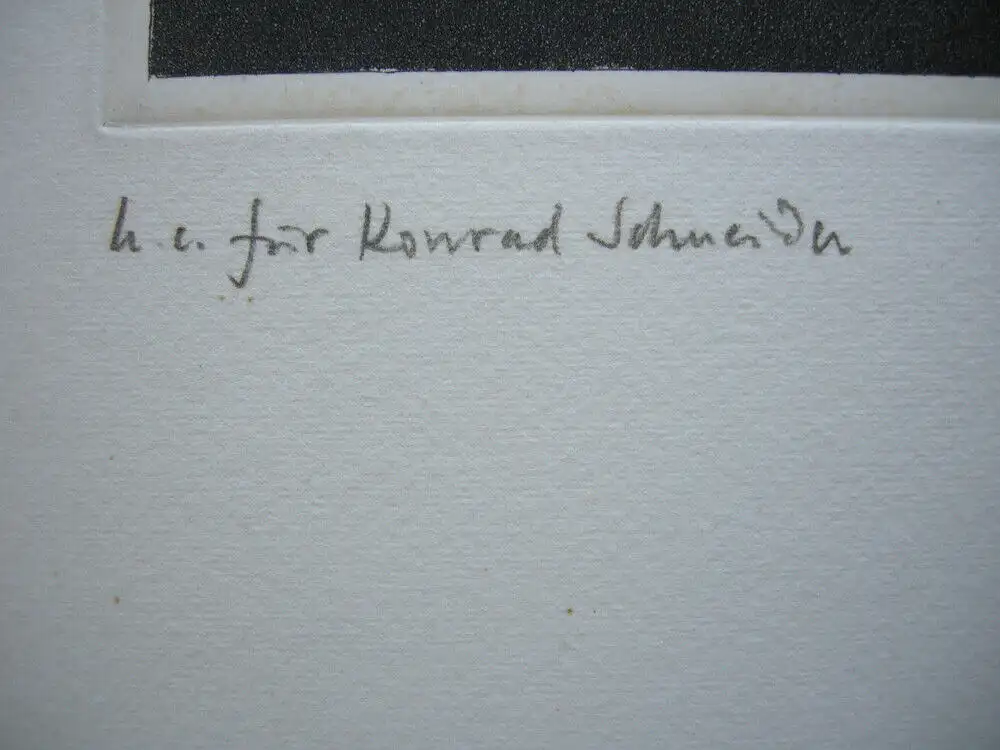 h.c. für Konrad Schneider